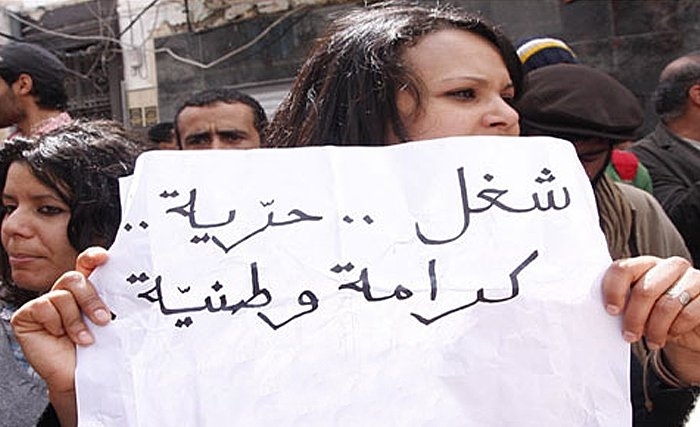 شغل .. حرّية ..
كرامة وطنيّة .